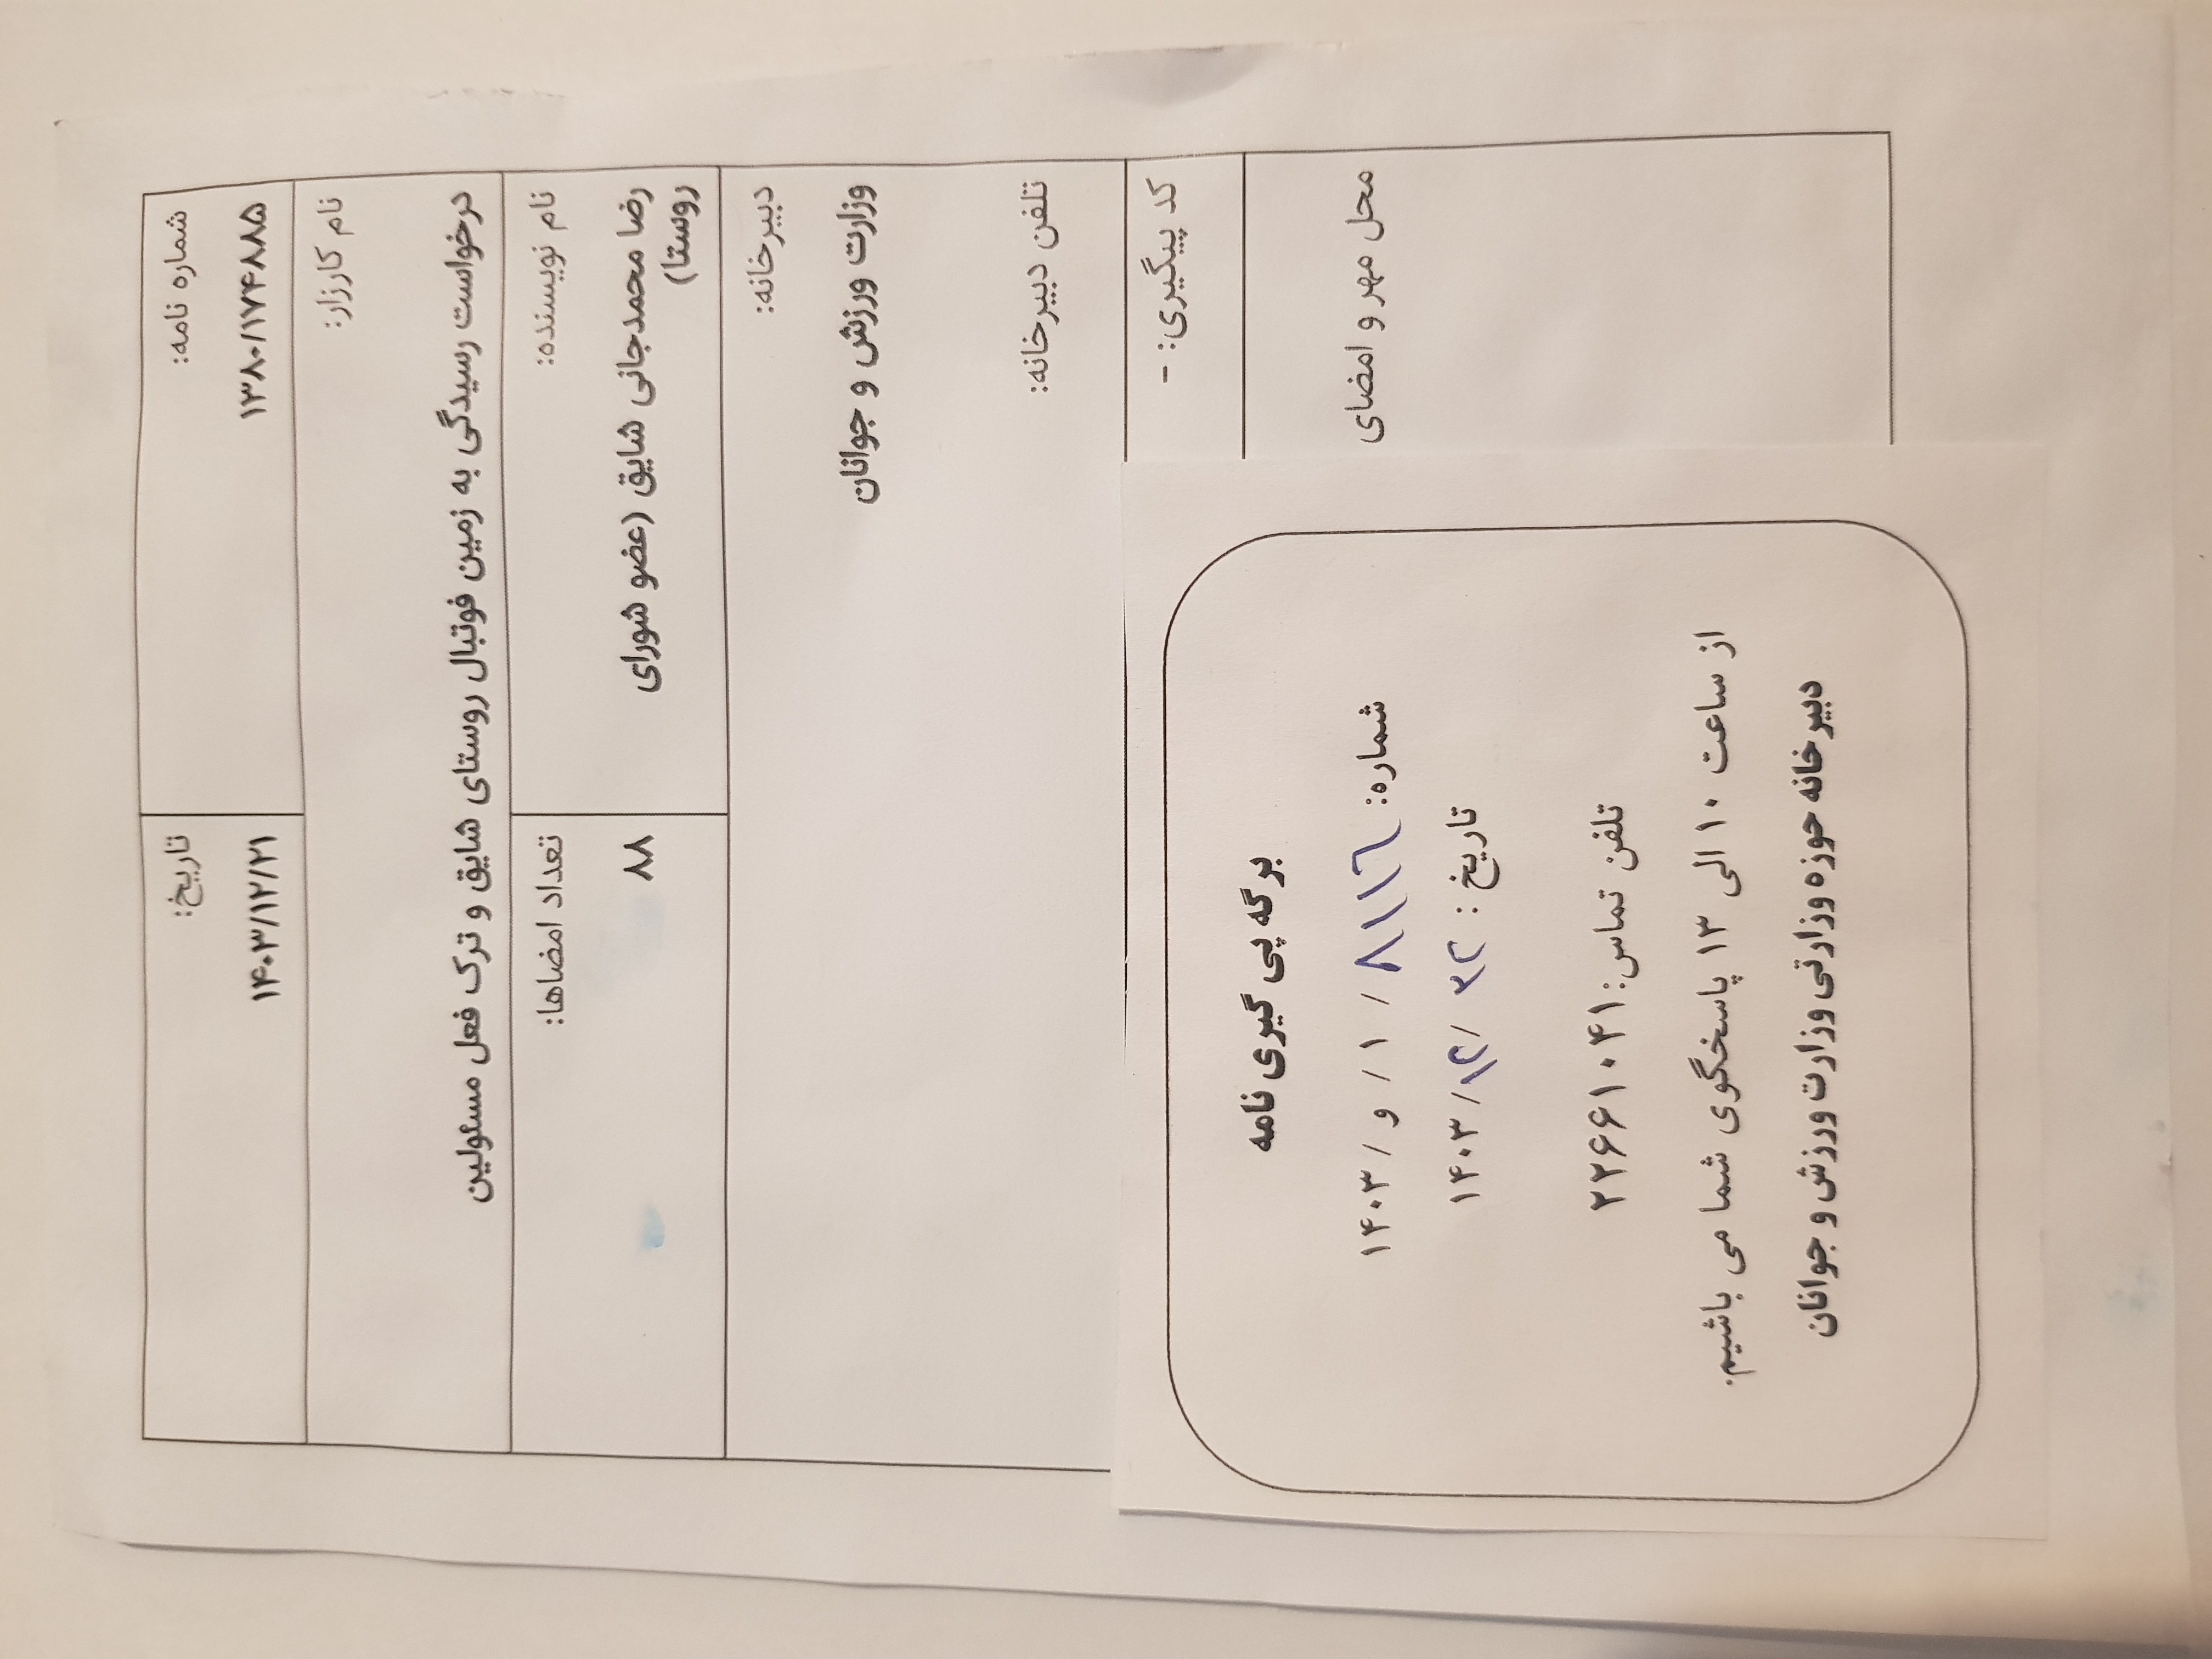 شماره نامه:
۱۳۸۰/۱۷۴۸۸۵
تاریخ:
۱۴۰۳/۱۲/۲۱
نام کارزار:
درخواست رسیدگی به زمین فوتبال روستای شایق و ترک فعل مسئولین
نام نویسنده:
رضا محمدجانی شایق (عضو شورای
روستا)
تعداد امضاها:
۸۸
دبیرخانه:
وزارت ورزش و جوانان
تلفن دبیرخانه:
کد پیگیری: -
محل مهر و امضای
برگه پی گیری نامه
شماره: ۸۱۱۶ / ۱ / و / ۱۴۰۳
تاریخ : ۲۲ / ۱۲ / ۱۴۰۳
تلفن تماس: ۲۲۶۶۱۰۴۱
از ساعت ۱۰ الی ۱۳ پاسخگوی شما می باشیم.
دبیرخانه حوزه وزارتی وزارت ورزش و جوانان